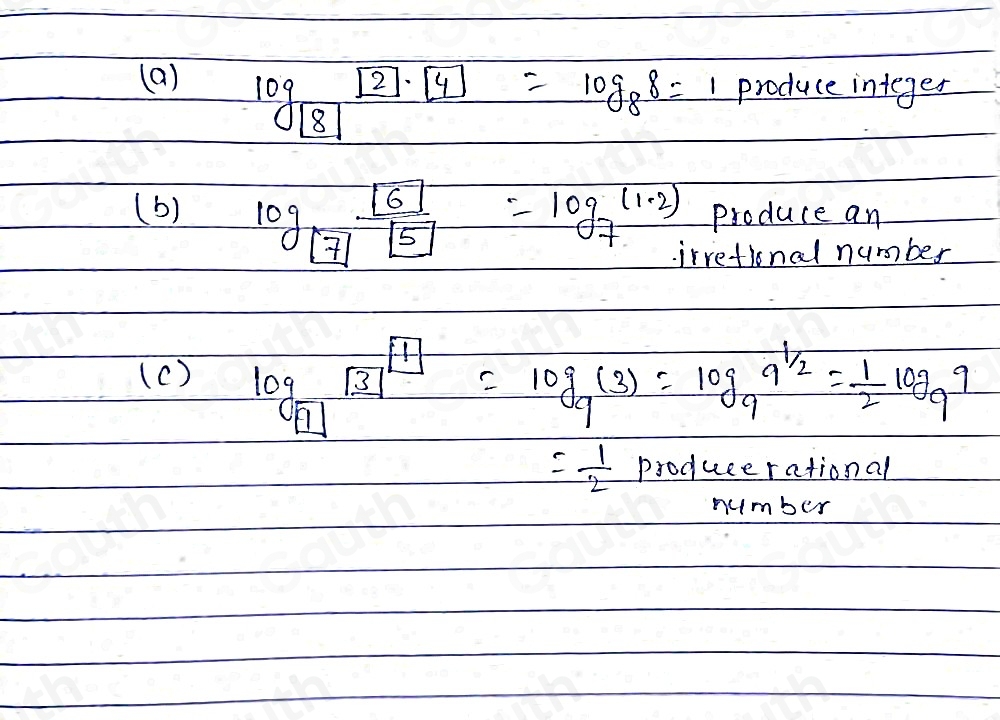 (a) log [8] [2] · [4] = log₈ 8 = 1 produce integer
(b) log [7] [6]/[5] = log₇ (1·2) produce an
irretional number
(c) log [9] [3]^[1] = log₉ (3) = log₉ 9^1/2 = 1/2 log₉ 9
= 1/2 produce rational
number